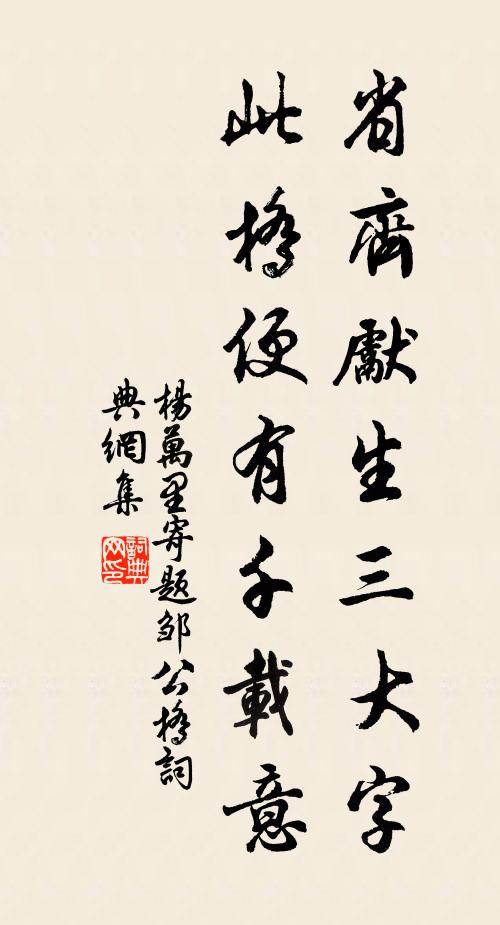 省齊獻生三大字
此橋便有千載意
楊萬里寄題邹公橋詞
典網集
詞典
网印